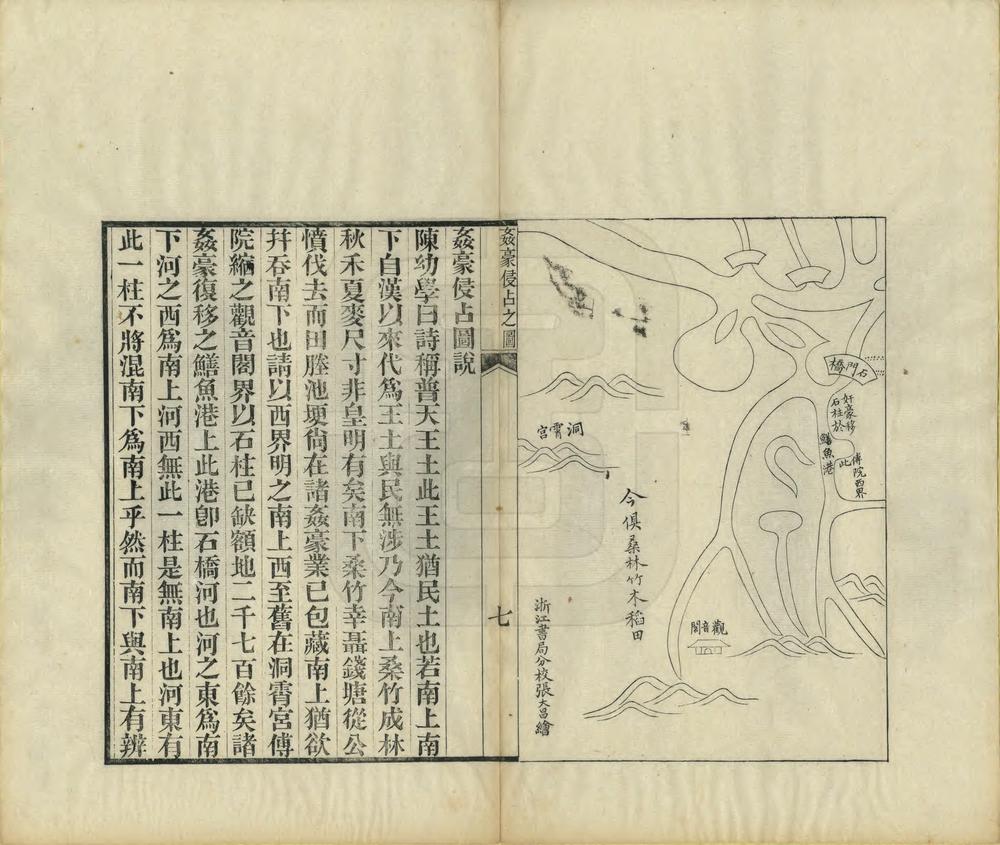 石門橋
奸豪移
石柱於
此
傅院西界
鱔魚港
觀音閣
洞霄宮
今俱桑林竹木稻田
浙江書局分校張大昌繪
姦豪侵占之圖
七
姦豪侵占圖說
陳幼學曰詩稱普天王土此王土猶民土也若南上南
下自漢以來代爲王土與民無涉乃今南上桑竹成林
秋禾夏麥尺寸非皇明有矣南下桑竹幸聶錢塘從公
憤伐去而田塍池埂尙在諸姦豪業已包藏南上猶欲
幷吞南下也請以西界明之南上西至舊在洞霄宮傅
院繼之觀音閣界以石柱已缺額地二千七百餘矣諸
姦豪復移之鱔魚港上此港卽石橋河也河之東爲南
下河之西爲南上河西無此一柱是無南上也河東有
此一柱不將混南下爲南上乎然而南下與南上有辨